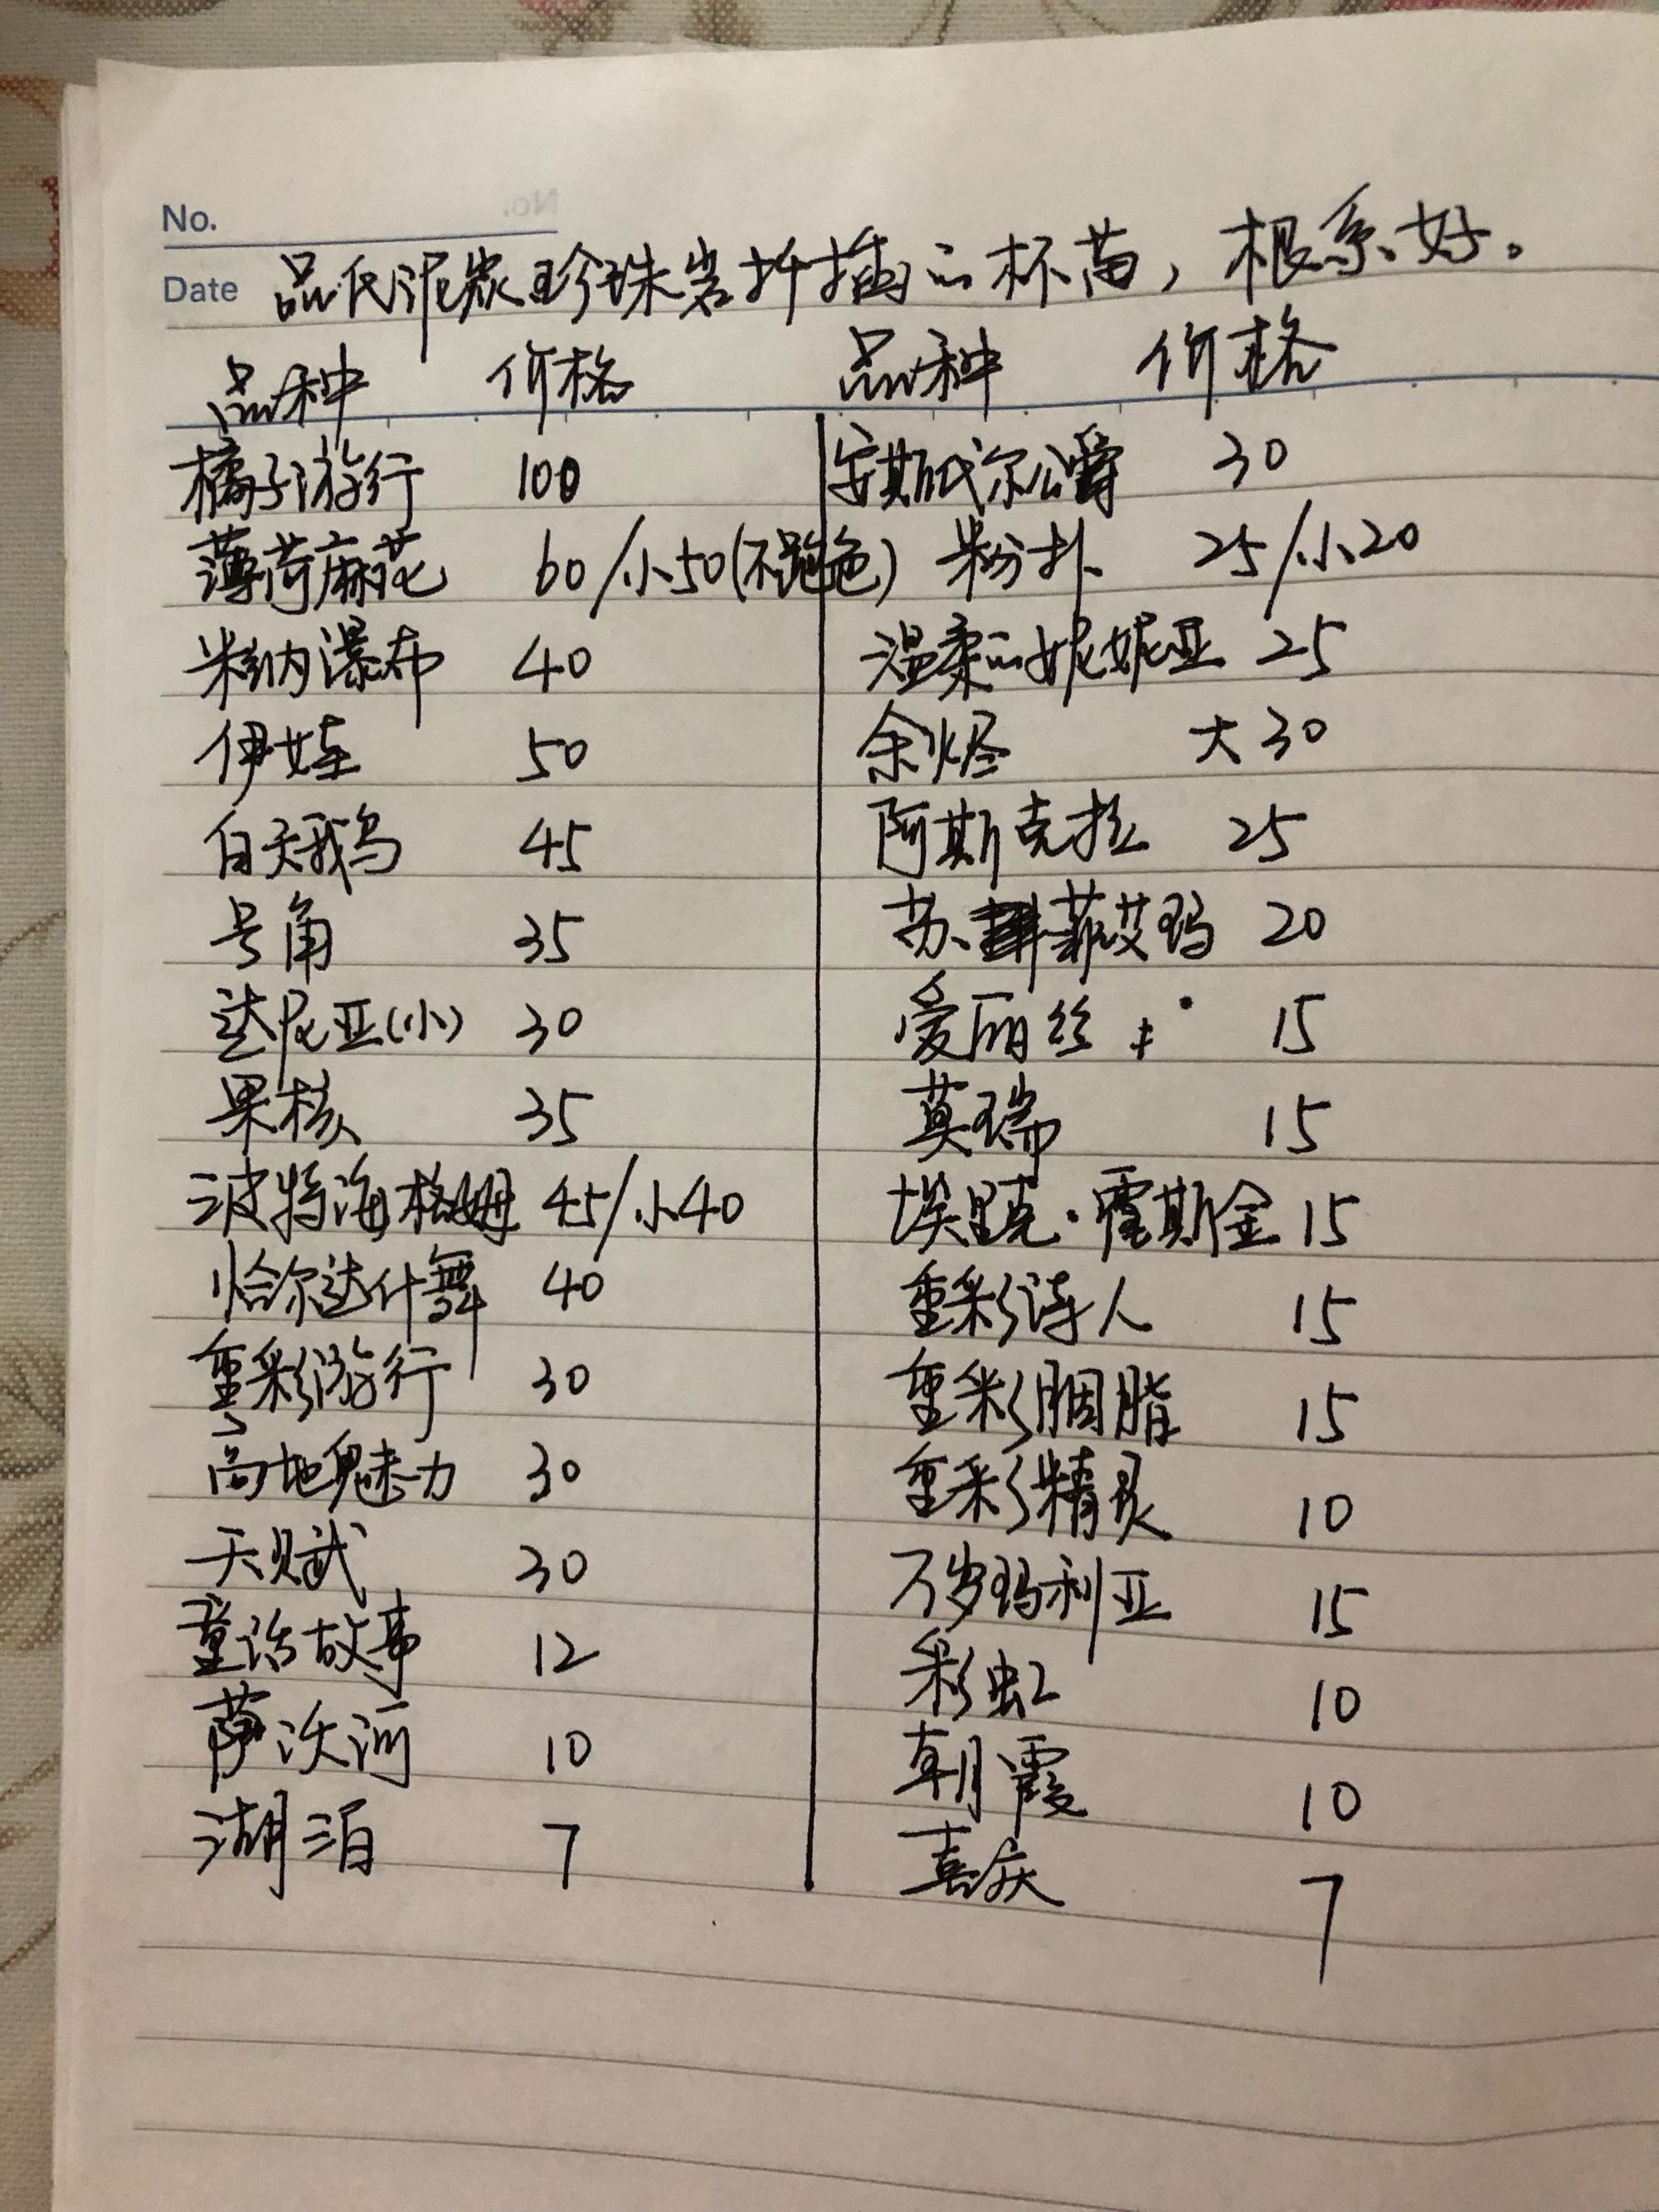 No.
Date 品氏泥炭珍珠岩扦插的杯苗，根系好。
品种 价格 品种 价格
橘子游行 100 安斯比尔公爵 30
薄荷麻花 60/小50(不跑色) 粉扑 25/小20
米纳瀑布 40 温柔的妮妮亚 25
伊娃 50 余烬 大30
白天鹅 45 阿斯克拉 25
号角 35 苏菲艾玛 20
达尼亚(小) 30 爱丽丝 15
果核 35 莫瑞 15
波特海格姆 45/小40 埃里克·霍斯金 15
恰尔达什舞 40 重彩诗人 15
重彩游行 30 重彩胭脂 15
高地魅力 30 重彩精灵 10
天赋 30 万岁玛利亚 15
童话故事 12 彩虹 10
萨沃河 10 朝霞 10
湖泊 7 喜庆 7